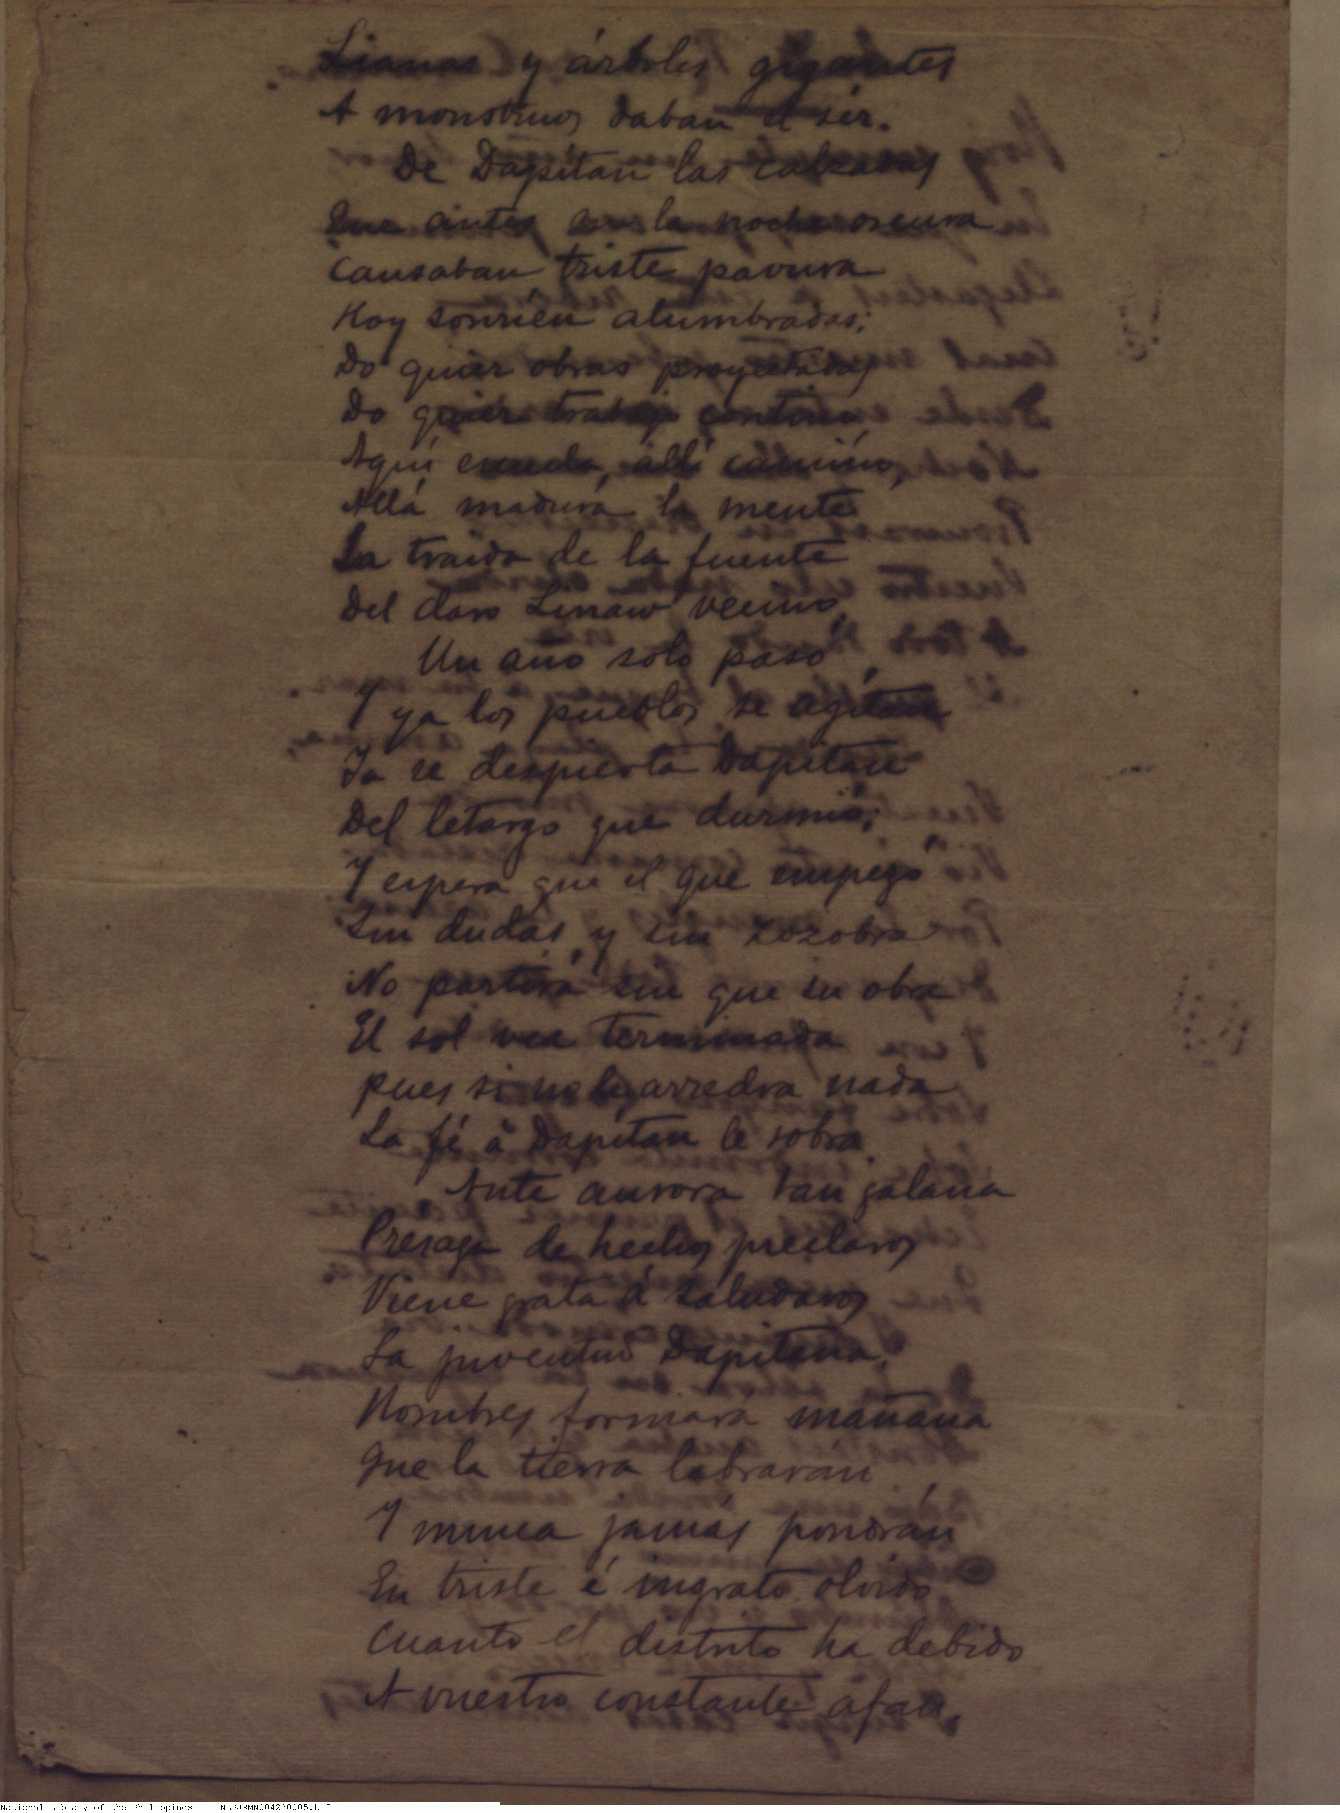 Lianas y árboles gigantes
A monstruos daban el sér.
De Dapitan las calzadas
Que antes en la noche oscura
Causaban triste pavura
Hoy sonrien alumbradas;
Do quier obras proyectadas
Do quier trabajo contino
Aquí escuela, allí camino,
Allá madura la mente
La traida de la fuente
Del claro Linaw vecino,
Un año solo pasó
Y ya los pueblos se agitan
Ya se despierta Dapitan
Del letargo que durmió;
Y espera que el que empezó
Sin dudas y sin zozobra
No partirá sin que su obra
El sol vea terminada
pues si no le arredra nada
La fé á Dapitan le sobra.
Ante aurora tan galana
Presagio de hechos preclaros
Viene grata á saludaros
La juventud Dapitana.
Hombres formará mañana
Que la tierra labrarán
Y nunca jamás pondrán
En triste é ingrato olvido
Cuanto el distrito ha debido
A vuestro constante afan.
National Library of the Philippines